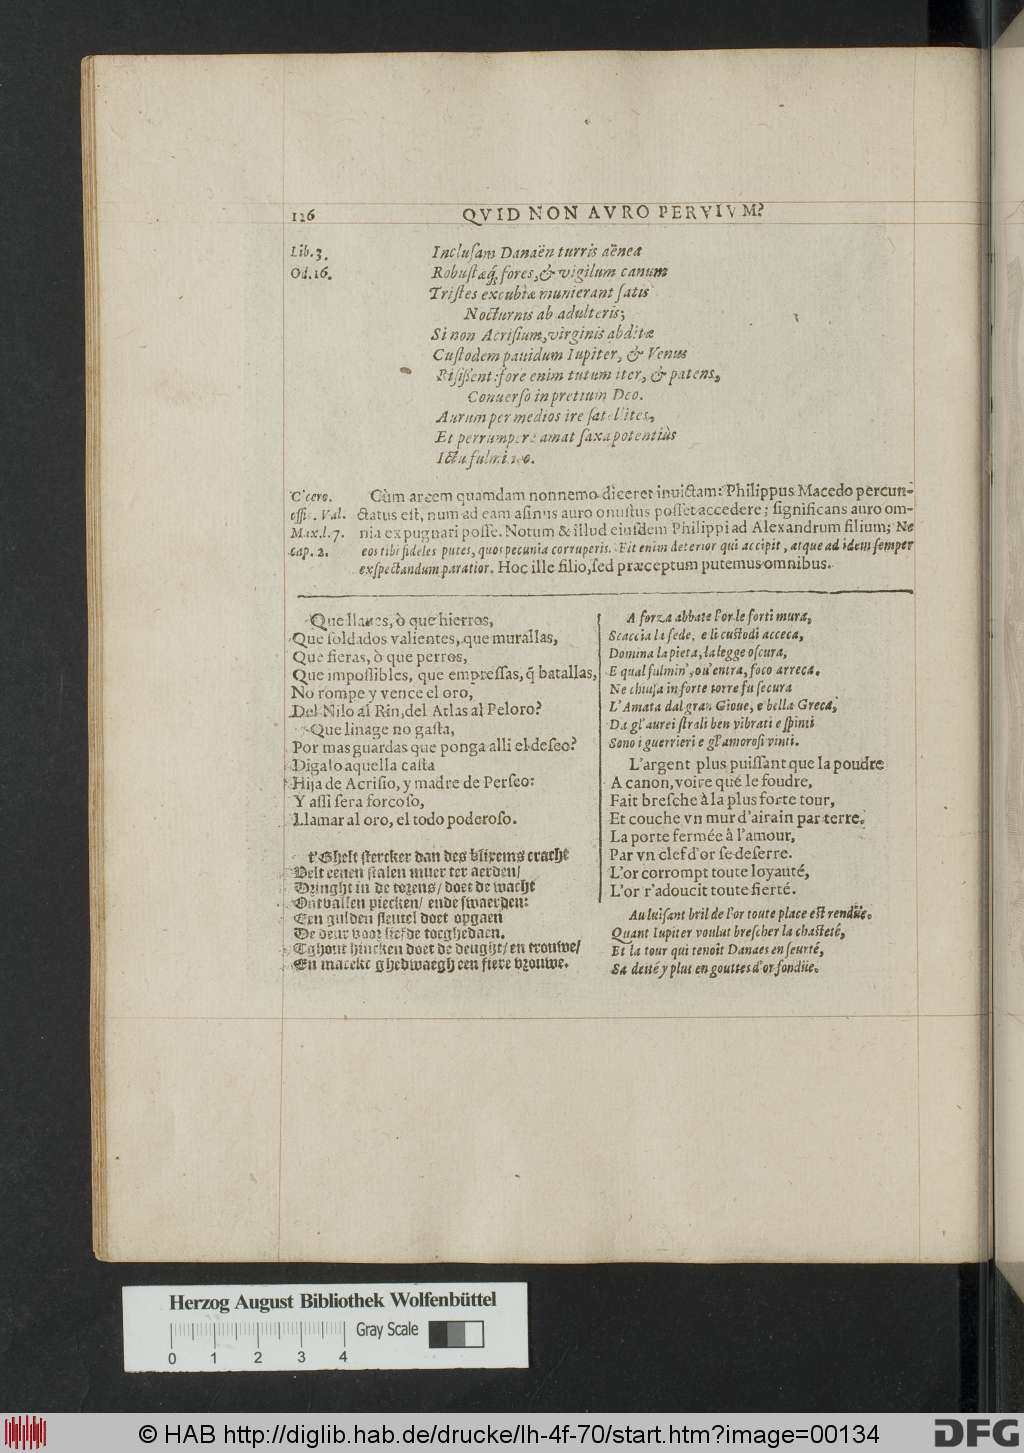 126
QVID NON AVRO PERVIVM?
Lib. 3.
Od. 16.
Inclusam Danaën turris aënea
Robustæq́; fores, & vigilum canum
Tristes excubiæ munierant satis
Nocturnis ab adulteris;
Si non Acrisium, virginis abditæ
Custodem pauidum Iupiter, & Venus
Risissent: fore enim tutum iter, & patens,
Conuerso in pretium Deo.
Aurum per medios ire satellites,
Et perrumpere amat saxa potentiùs
Icta fulmineo.
Cicero.
offic. Val.
Max. l. 7.
cap. 2.
Cùm arcem quamdam nonnemo diceret inuictam: Philippus Macedo percun-
ctatus est, num ad eam asinus auro onustus posset accedere; significans auro om-
nia expugnari posse. Notum & illud eiusdem Philippi ad Alexandrum filium; Ne
eos tibi fideles putes, quos pecunia corruperis. Fit enim deterior qui accipit, atque ad idem semper
exspectandum paratior. Hoc ille filio, sed præceptum putemus omnibus.
Que llaues, ò que hierros,
Que soldados valientes, que murallas,
Que fieras, ò que perros,
Que impossibles, que empressas, q̃ batallas,
No rompe y vence el oro,
Del Nilo al Rin, del Atlas al Peloro?
Que linage no gasta,
Por mas guardas que ponga alli el deseo?
Digalo aquella casta
Hija de Acrisio, y madre de Perseo:
Y assi sera forcoso,
Llamar al oro, el todo poderoso.
t'Ghelt stercker dan des blixems cracht
Velt eenen stalen muer ter aerden/
Dringht in de torens/ doet de wacht
Ontvallen piecken/ ende swaerden:
Een gulden sleutel doet opgaen
De deur voor liefde toeghedaen.
Tghout hincken doet de deught/ en trouwe/
En maeckt ghedwaegh een fiere vrouwe.
A forza abbate l'or le forti mura,
Scaccia la fede, e li custodi acceca,
Domina la pieta, la legge oscura,
E qual fulmin', ou' entra, foco arreca.
Ne chiusa in forte torre fu secura
L'Amata dal gran Gioue, e bella Greca,
Da gl' aurei strali ben vibrati e spinti
Sono i guerrieri e gl' amorosi vinti.
L'argent plus puissant que la poudre
A canon, voire qué le foudre,
Fait bresche à la plus forte tour,
Et couche vn mur d'airain par terre.
La porte fermée à l'amour,
Par vn clef d'or se deserre.
L'or corrompt toute loyauté,
L'or r'adoucit toute fierté.
Au luisant bril de l'or toute place est rendüe.
Quant Iupiter voulut brescher la chasteté,
Et la tour qui tenoit Danaes en seurté,
Sa deité y plut en gouttes d'or fondüe.
Herzog August Bibliothek Wolfenbüttel
Gray Scale
0 1 2 3 4
© HAB http://diglib.hab.de/drucke/lh-4f-70/start.htm?image=00134
DFG